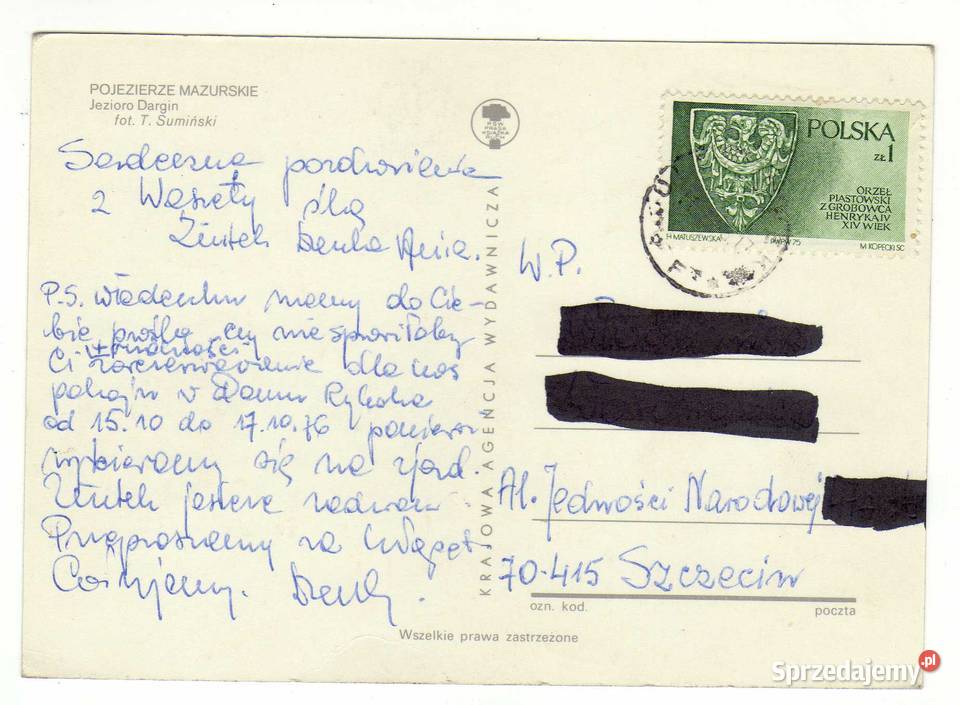 POJEZIERZE MAZURSKIE
Jezioro Dargin
fot. T. Sumiński
RSW
PRASA
KSIĄŻKA
RUCH
POLSKA
ZŁ 1
ORZEŁ
PIASTOWSKI
Z GROBOWCA
HENRYKA IV
XIV WIEK
H. MATUSZEWSKA
PWPW 75
M. KOPECKI SC
Serdeczne pozdrowienia
z ślą
Ania.
P.S. mamy do Cie-
bie prośbę czy nie sprawiłoby
Ci trudności
zarezerwowanie dla nas
pokoju w Domu Rybaka
od 15.10 do 17.10.76 ponieważ
wybieramy się na zjazd.
Przepraszamy za kłopot
Całujemy.
KRAJOWA AGENCJA WYDAWNICZA
W.P.
Al. Jedności Narodowej
70-415 Szczecin
ozn. kod.
poczta
Wszelkie prawa zastrzeżone
Sprzedajemy.pl